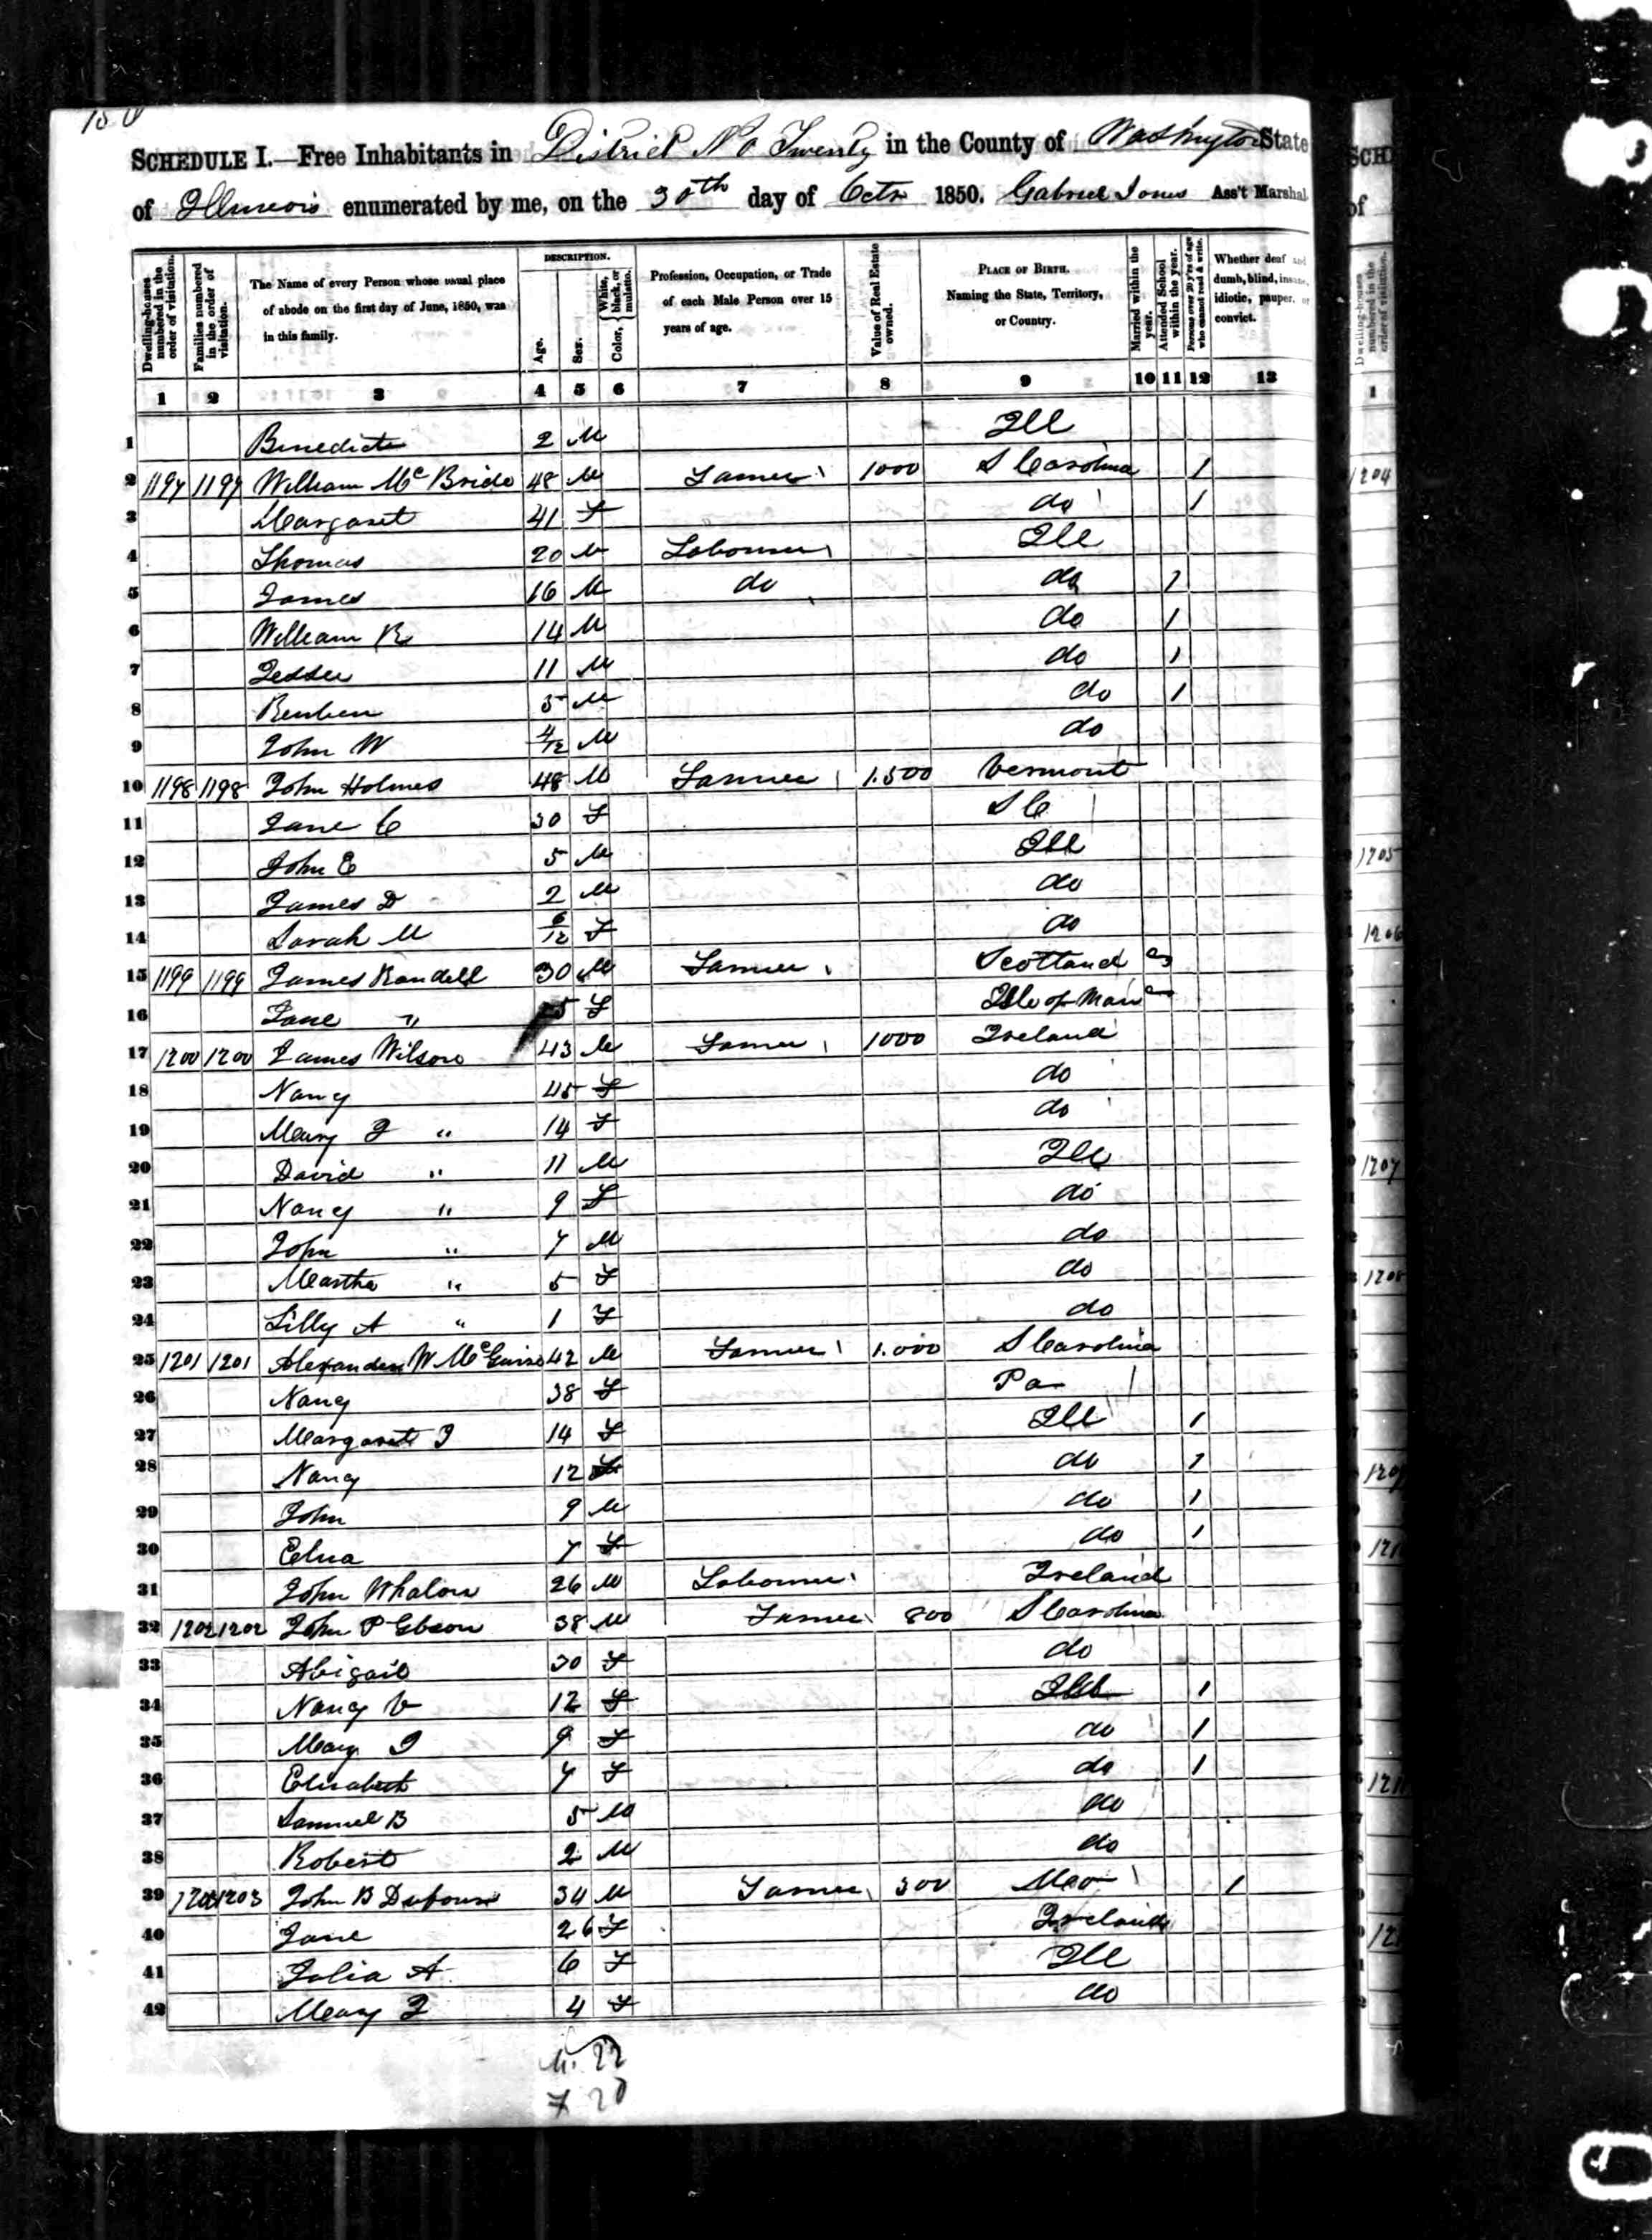 SCHEDULE I.—Free Inhabitants in District No Twenty in the County of Washington State
of Illinois enumerated by me, on the 30th day of Octr 1850. Gabriel Jones Ass't Marshal
Dwelling-houses numbered in the order of visitation.
Families numbered in the order of visitation.
The Name of every Person whose usual place of abode on the first day of June, 1850, was in this family.
DESCRIPTION.
Age.
Sex.
Color, White, black, or mulatto.
Profession, Occupation, or Trade of each Male Person over 15 years of age.
Value of Real Estate owned.
PLACE OF BIRTH. Naming the State, Territory, or Country.
Married within the year.
Attended School within the year.
Persons over 20 y'rs of age who cannot read & write.
Whether deaf and dumb, blind, insane, idiotic, pauper, or convict.
1 2 3 4 5 6 7 8 9 10 11 12 13
1 Benedict 2 M Ill
2 1197 1197 William McBride 48 M Farmer 1000 S Carolina 1
3 Margaret 41 F do 1
4 Thomas 20 M Labourer Ill
5 James 16 M do do 1
6 William R 14 M do 1
7 Jessee 11 M do 1
8 Reuben 5 M do 1
9 John W 4/12 M do
10 1198 1198 John Holmes 48 M Farmer 1.500 Vermont
11 Jane C 30 F S C
12 John E 5 M Ill
13 James D 2 M do
14 Sarah M 6/12 F do
15 1199 1199 James Randell 30 M Farmer Scotland
16 Jane " F Isle of Man
17 1200 1200 James Wilson 43 M Farmer 1000 Ireland
18 Nancy 45 F do
19 Mary J " 14 F do
20 David " 11 M Ill
21 Nancy " 9 F do
22 John " 7 M do
23 Martha " 5 F do
24 Lilly A " 1 F do
25 1201 1201 Alexander W McGuire 42 M Farmer 1.000 S Carolina
26 Nancy 38 F Pa
27 Margaret J 14 F Ill 1
28 Nancy 12 F do 1
29 John 9 M do 1
30 7 F do 1
31 John Whalon 26 M Labourer Ireland
32 1202 1202 John P Gibson 38 M Farmer 800 S Carolina
33 Abigail 30 F do
34 Nancy V 12 F Ill 1
35 Mary J 9 F do 1
36 Elisabeth 7 F do 1
37 Samuel B 5 M do
38 Robert 2 M do
39 1203 John B 34 M Farmer 300 Mo 1
40 Jane 26 F Ireland
41 Julia A 6 F Ill
42 Mary J 4 F do
M. 22
F 20